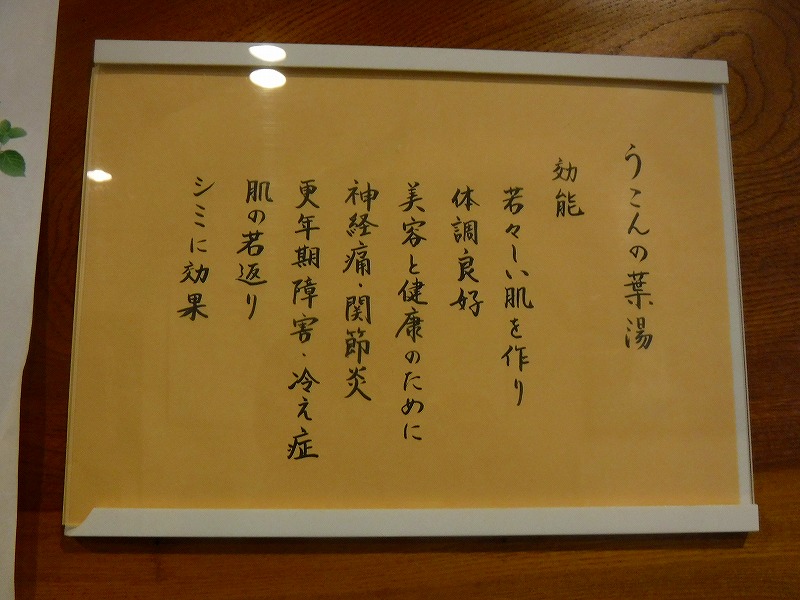 うこんの葉湯
効能
若々しい肌を作り
体調良好
美容と健康のために
神経痛・関節炎
更年期障害・冷え症
肌の若返り
シミに効果